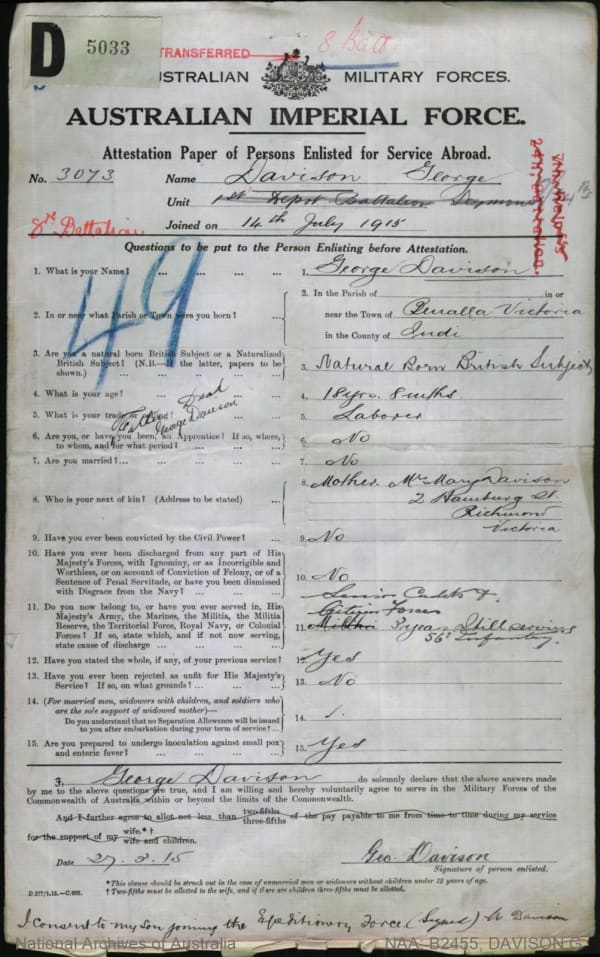 D 5033
TRANSFERRED 8 Batt
AUSTRALIAN MILITARY FORCES.
AUSTRALIAN IMPERIAL FORCE.
Attestation Paper of Persons Enlisted for Service Abroad.
No. 3073 Name Davison George
Unit 1st Depot Battalion Seymour
8th Battalion Joined on 14th July 1915
24TH
Questions to be put to the Person Enlisting before Attestation.
49
1. What is your Name? ... ... ... ... 1. George Davison
2. In or near what Parish or Town were you born? ... 2. In the Parish of in or
near the Town of Benalla Victoria
in the County of Indi
3. Are you a natural born British Subject or a Naturalized
British Subject? (N.B.—If the latter, papers to be
shown.) 3. Natural Born British Subject
4. What is your age? ... ... 4. 18yrs. 8 mths
5. What is your trade or Calling? ... ... 5. Laborer
Father Dead
George Davison
6. Are you, or have you been, an Apprentice? If so, where,
to whom, and for what period? ... ... 6. No
7. Are you married? ... ... ... ... 7. No
8. Who is your next of kin? (Address to be stated) ... 8. Mother. Mrs Mary Davison
2 Hamburg St.
Richmond
Victoria
9. Have you ever been convicted by the Civil Power? ... 9. No
10. Have you ever been discharged from any part of His
Majesty's Forces, with Ignominy, or as Incorrigible and
Worthless, or on account of Conviction of Felony, or of a
Sentence of Penal Servitude, or have you been dismissed
with Disgrace from the Navy? ... ... 10. No
11. Do you now belong to, or have you ever served in, His
Majesty's Army, the Marines, the Militia, the Militia
Reserve, the Territorial Force, Royal Navy, or Colonial
Forces? If so, state which, and if not now serving,
state cause of discharge ... ... ...
Senior Cadets &
Citizen Forces
11. Militia 3 years Still serving
56th Infantry.
12. Have you stated the whole, if any, of your previous service? 12. Yes
13. Have you ever been rejected as unfit for His Majesty's
Service? If so, on what grounds? ... ... ... 13. No
14. (For married men, widowers with children, and soldiers who
are the sole support of widowed mother)—
Do you understand that no Separation Allowance will be issued
to you after embarkation during your term of service? ... 14.
15. Are you prepared to undergo inoculation against small pox
and enteric fever? ... ... ... ... 15. Yes
I, George Davison do solemnly declare that the above answers made
by me to the above questions are true, and I am willing and hereby voluntarily agree to serve in the Military Forces of the
Commonwealth of Australia within or beyond the limits of the Commonwealth.
And I further agree to allot not less than two-fifths three-fifths of the pay payable to me from time to time during my service
for the support of my wife.*† wife and children.
Date 27. 15 Geo. Davison
Signature of person enlisted.
* This clause should be struck out in the case of unmarried men or widowers without children under 18 years of age.
† Two-fifths must be allotted to the wife, and if there are children three-fifths must be allotted.
I consent to my son joining the Expeditionary Force. (Signed) M Davison
National Archives of Australia NAA: B2455, DAVISON G